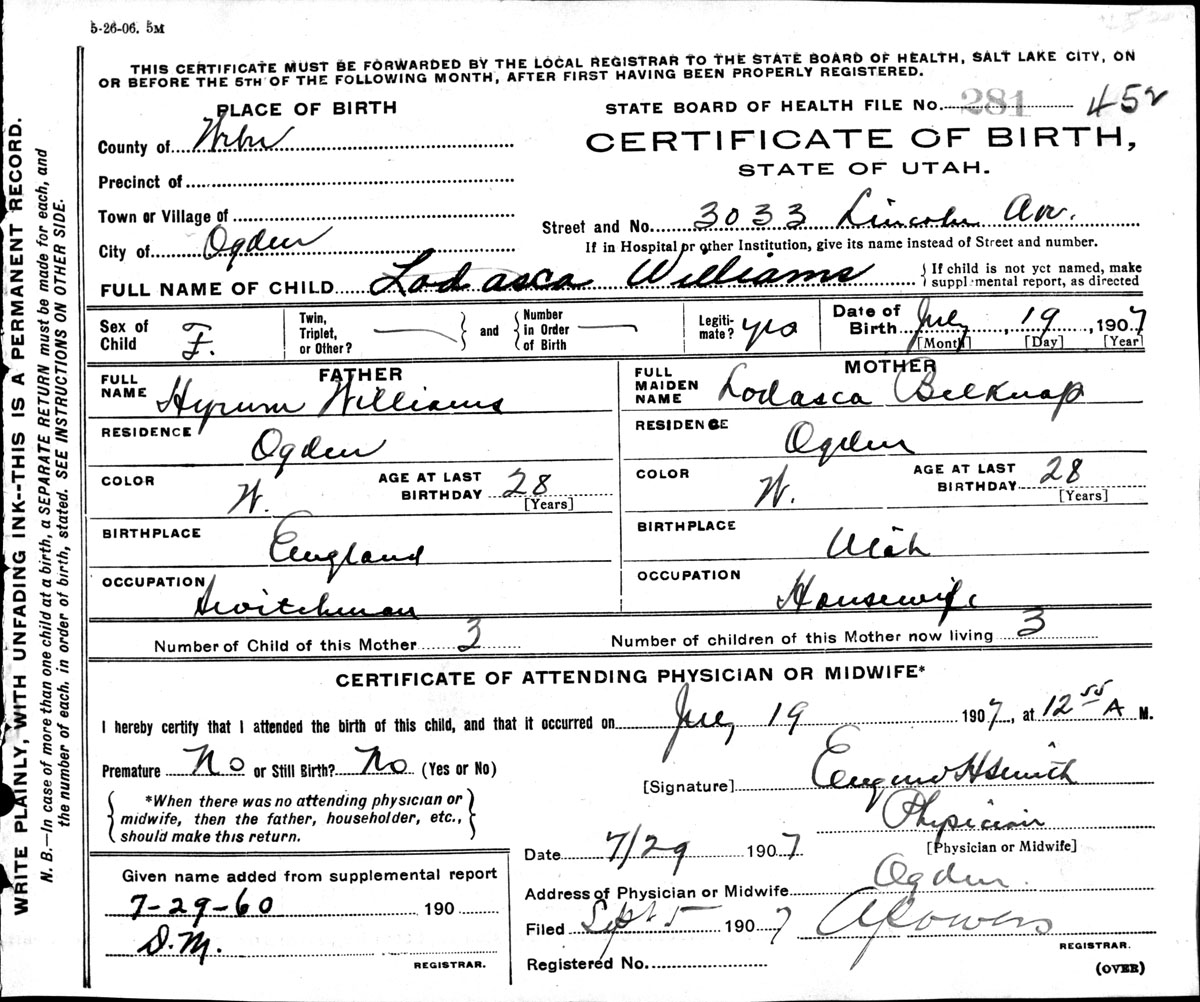 5-26-06. 5M
THIS CERTIFICATE MUST BE FORWARDED BY THE LOCAL REGISTRAR TO THE STATE BOARD OF HEALTH, SALT LAKE CITY, ON
OR BEFORE THE 5TH OF THE FOLLOWING MONTH, AFTER FIRST HAVING BEEN PROPERLY REGISTERED.
PLACE OF BIRTH
STATE BOARD OF HEALTH FILE No. 281 452
County of
CERTIFICATE OF BIRTH,
STATE OF UTAH.
Precinct of
Town or Village of
Street and No. 3033 Lincoln Ave.
City of Ogden
If in Hospital or other Institution, give its name instead of Street and number.
FULL NAME OF CHILD Lodasca Williams
{ If child is not yet named, make
supplemental report, as directed
Sex of Child F.
Twin, Triplet, or Other? } and { Number in Order of Birth
Legitimate? yes
Date of Birth July, 19, 1907
[Month] [Day] [Year]
FATHER
FULL NAME Hyrum Williams
RESIDENCE Ogden
COLOR W. AGE AT LAST BIRTHDAY 28 [Years]
BIRTHPLACE England
OCCUPATION Switchman
MOTHER
FULL MAIDEN NAME Lodasca Belknap
RESIDENCE Ogden
COLOR W. AGE AT LAST BIRTHDAY 28 [Years]
BIRTHPLACE Utah
OCCUPATION Housewife
Number of Child of this Mother 3 Number of children of this Mother now living 3
CERTIFICATE OF ATTENDING PHYSICIAN OR MIDWIFE*
I hereby certify that I attended the birth of this child, and that it occurred on July 19 1907, at 12 55 A M.
Premature No or Still Birth? No (Yes or No)
[Signature] Eugene H Smith
*When there was no attending physician or
midwife, then the father, householder, etc.,
should make this return.
Physician
[Physician or Midwife]
Date 7/29 1907
Address of Physician or Midwife Ogden.
Filed Sept 5 1907
REGISTRAR.
Registered No.
(OVER)
Given name added from supplemental report
7-29-60 190
D.M.
REGISTRAR.
WRITE PLAINLY, WITH UNFADING INK--THIS IS A PERMANENT RECORD.
N. B.—In case of more than one child at a birth, a SEPARATE RETURN must be made for each, and
the number of each. in order of birth, stated. SEE INSTRUCTIONS ON OTHER SIDE.